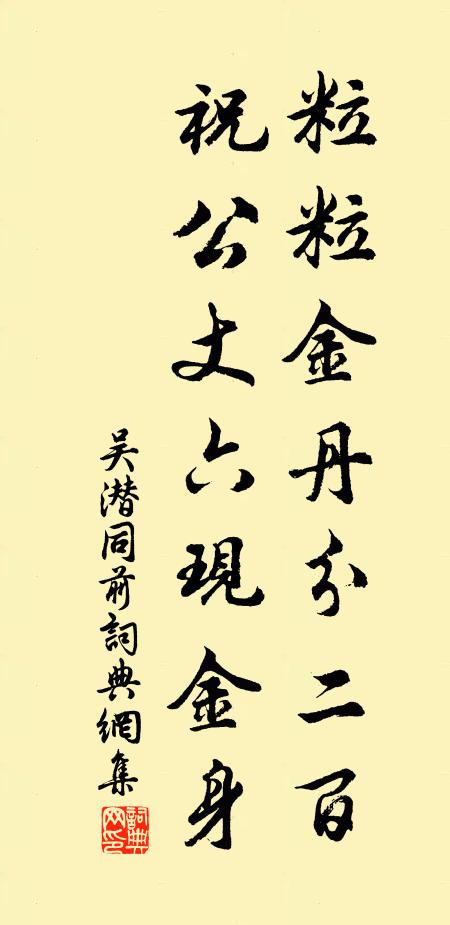 粒粒金丹分二百
祝公丈六現金身
吴潜同前詞典網集
詞典網印